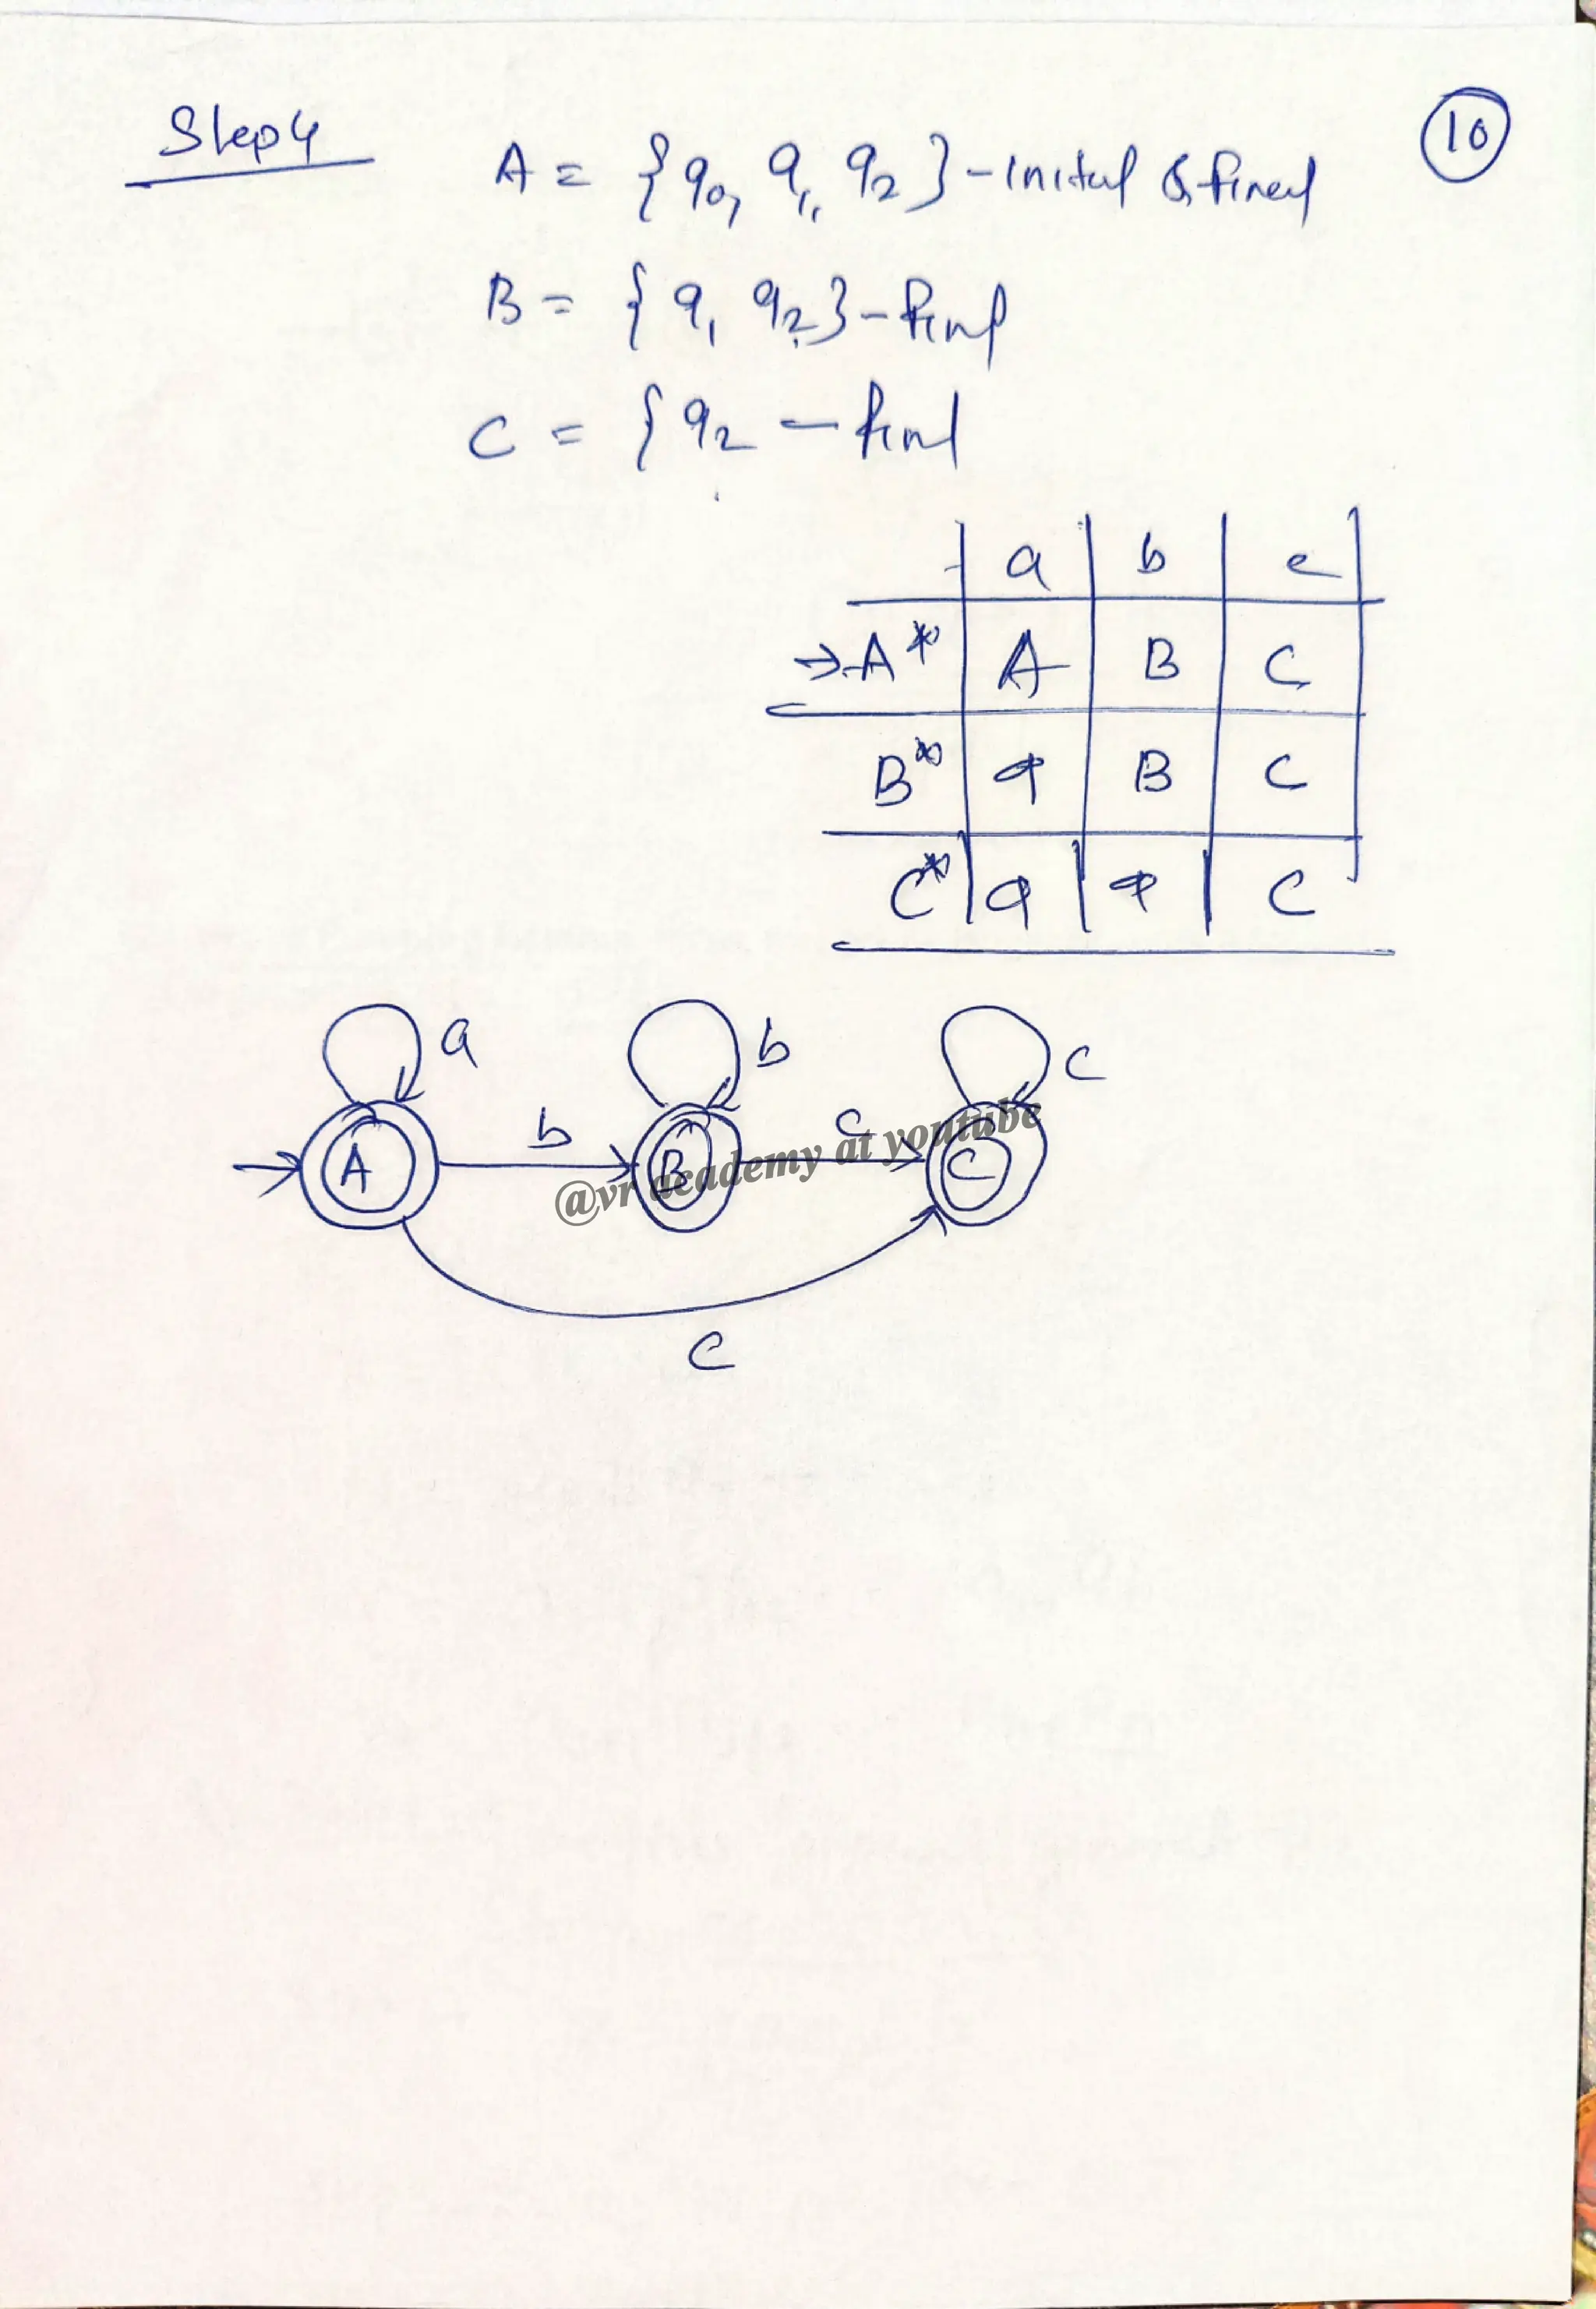 Step 4
10
A = {q0, q1, q2} - Inital & final
B = {q1 q2} - final
C = {q2 - final
a b c
→ A* A B C
B* φ B C
C* φ φ C
a b c
b c
A B C
c
@vr academy at youtube